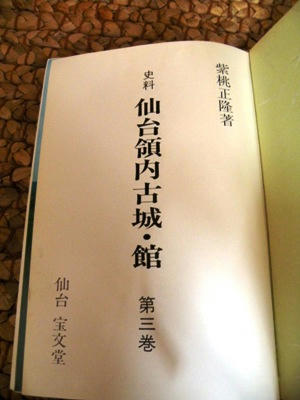 紫桃正隆著
史料 仙台領内古城・館 第三巻
仙台 宝文堂